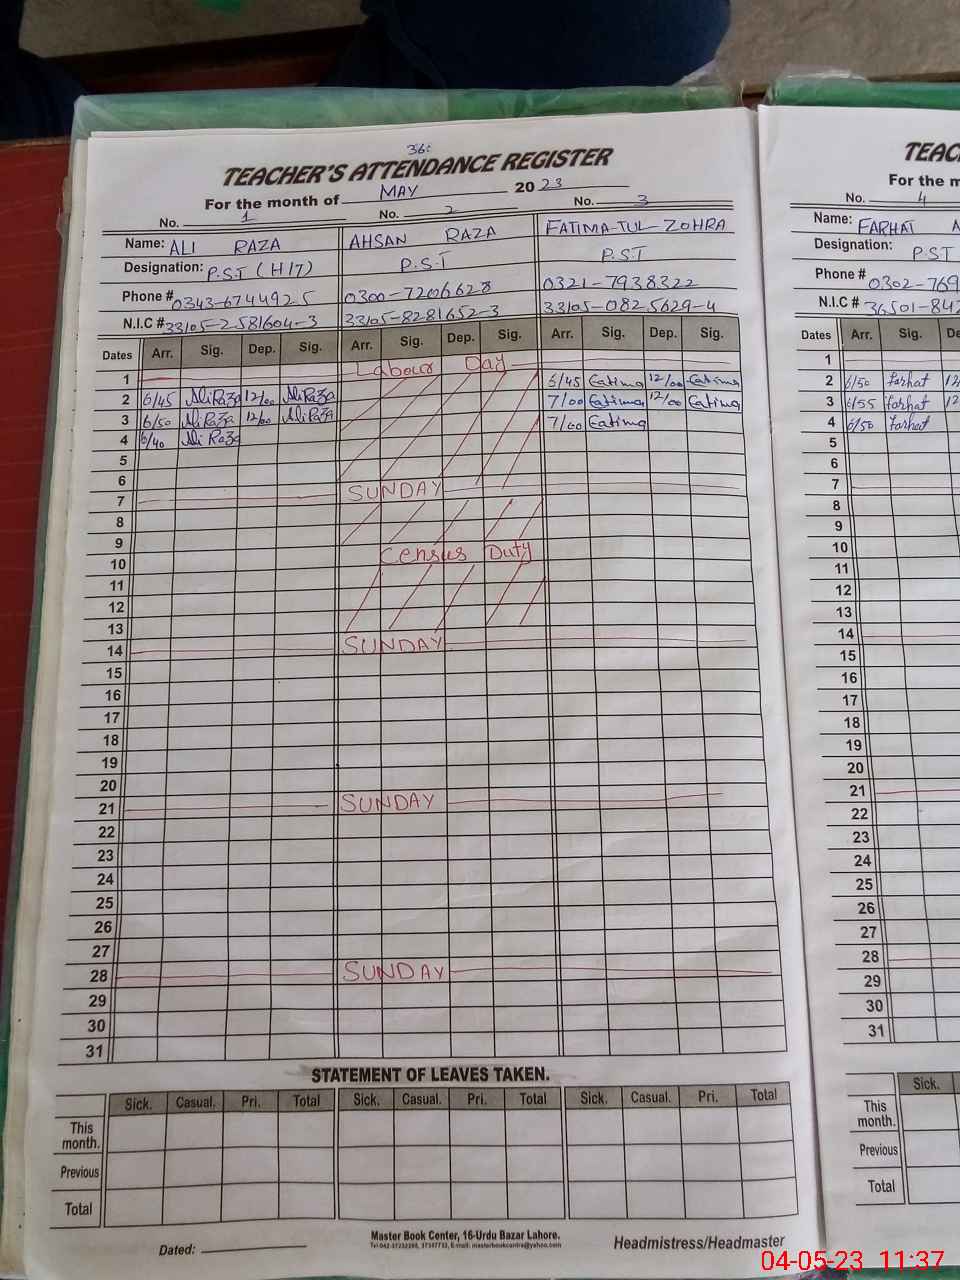 36:
TEACHER'S ATTENDANCE REGISTER
For the month of MAY 2023
No. 1 No. 2 No. 3
Name: ALI RAZA AHSAN RAZA FATIMA-TUL-ZOHRA
Designation: P.S.T (H/T) P.S.T P.S.T
Phone # 0343-6744925 0300-7206628 0321-7938322
N.I.C # 33105-2581604-3 33105-8281652-3 33105-0825629-4
Dates Arr. Sig. Dep. Sig. Arr. Sig. Dep. Sig. Arr. Sig. Dep. Sig.
1 Labour Day
2 6/45 Ali Raza 12/00 Ali Raza 6/45 Fatima 12/00 Fatima
3 6/50 Ali Raza 12/00 Ali Raza 7/00 Fatima 12/00 Fatima
4 6/40 Ali Raza 7/00 Fatima
5
6
7 SUNDAY
8
9
10 Census Duty
11
12
13
14 SUNDAY
15
16
17
18
19
20
21 SUNDAY
22
23
24
25
26
27
28 SUNDAY
29
30
31
STATEMENT OF LEAVES TAKEN.
Sick. Casual. Pri. Total Sick. Casual. Pri. Total Sick. Casual. Pri. Total
This month.
Previous
Total
Master Book Center, 16-Urdu Bazar Lahore.
Dated: Headmistress/Headmaster
TEAC
For the m
No. 4
Name: FARHAT A
Designation: P.ST
Phone # 0302-769
N.I.C # 36501-842
Dates Arr. Sig. De
1
2 6/50 farhat 12
3 6/55 farhat 12
4 6/50 farhat
5
6
7
8
9
10
11
12
13
14
15
16
17
18
19
20
21
22
23
24
25
26
27
28
29
30
31
Sick.
This month.
Previous
Total
04-05-23 11:37